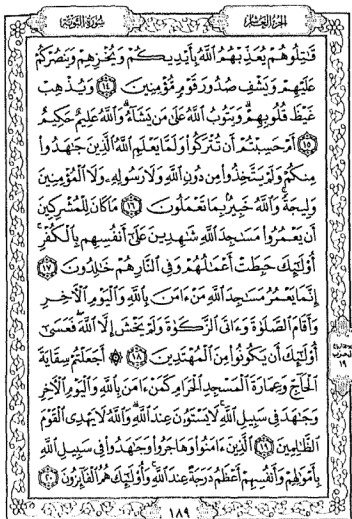 الجزء العاشر
سورة التوبة
قَٰتِلُوهُمْ يُعَذِّبْهُمُ ٱللَّهُ بِأَيْدِيكُمْ وَيُخْزِهِمْ وَيَنصُرْكُمْ
عَلَيْهِمْ وَيَشْفِ صُدُورَ قَوْمٍ مُّؤْمِنِينَ ١٤ وَيُذْهِبْ
غَيْظَ قُلُوبِهِمْ وَيَتُوبُ ٱللَّهُ عَلَىٰ مَن يَشَآءُ وَٱللَّهُ عَلِيمٌ حَكِيمٌ
١٥ أَمْ حَسِبْتُمْ أَن تُتْرَكُوا۟ وَلَمَّا يَعْلَمِ ٱللَّهُ ٱلَّذِينَ جَٰهَدُوا۟
مِنكُمْ وَلَمْ يَتَّخِذُوا۟ مِن دُونِ ٱللَّهِ وَلَا رَسُولِهِۦ وَلَا ٱلْمُؤْمِنِينَ
وَلِيجَةً وَٱللَّهُ خَبِيرٌۢ بِمَا تَعْمَلُونَ ١٦ مَا كَانَ لِلْمُشْرِكِينَ
أَن يَعْمُرُوا۟ مَسَٰجِدَ ٱللَّهِ شَٰهِدِينَ عَلَىٰٓ أَنفُسِهِم بِٱلْكُفْرِ
أُو۟لَٰٓئِكَ حَبِطَتْ أَعْمَٰلُهُمْ وَفِى ٱلنَّارِ هُمْ خَٰلِدُونَ ١٧
إِنَّمَا يَعْمُرُ مَسَٰجِدَ ٱللَّهِ مَنْ ءَامَنَ بِٱللَّهِ وَٱلْيَوْمِ ٱلْءَاخِرِ
وَأَقَامَ ٱلصَّلَوٰةَ وَءَاتَى ٱلزَّكَوٰةَ وَلَمْ يَخْشَ إِلَّا ٱللَّهَ فَعَسَىٰٓ
أُو۟لَٰٓئِكَ أَن يَكُونُوا۟ مِنَ ٱلْمُهْتَدِينَ ١٨ ۞ أَجَعَلْتُمْ سِقَايَةَ
ٱلْحَآجِّ وَعِمَارَةَ ٱلْمَسْجِدِ ٱلْحَرَامِ كَمَنْ ءَامَنَ بِٱللَّهِ وَٱلْيَوْمِ ٱلْءَاخِرِ
وَجَٰهَدَ فِى سَبِيلِ ٱللَّهِ لَا يَسْتَوُۥنَ عِندَ ٱللَّهِ وَٱللَّهُ لَا يَهْدِى ٱلْقَوْمَ
ٱلظَّٰلِمِينَ ١٩ ٱلَّذِينَ ءَامَنُوا۟ وَهَاجَرُوا۟ وَجَٰهَدُوا۟ فِى سَبِيلِ ٱللَّهِ
بِأَمْوَٰلِهِمْ وَأَنفُسِهِمْ أَعْظَمُ دَرَجَةً عِندَ ٱللَّهِ وَأُو۟لَٰٓئِكَ هُمُ ٱلْفَآئِزُونَ ٢٠
١٩
١٨٩